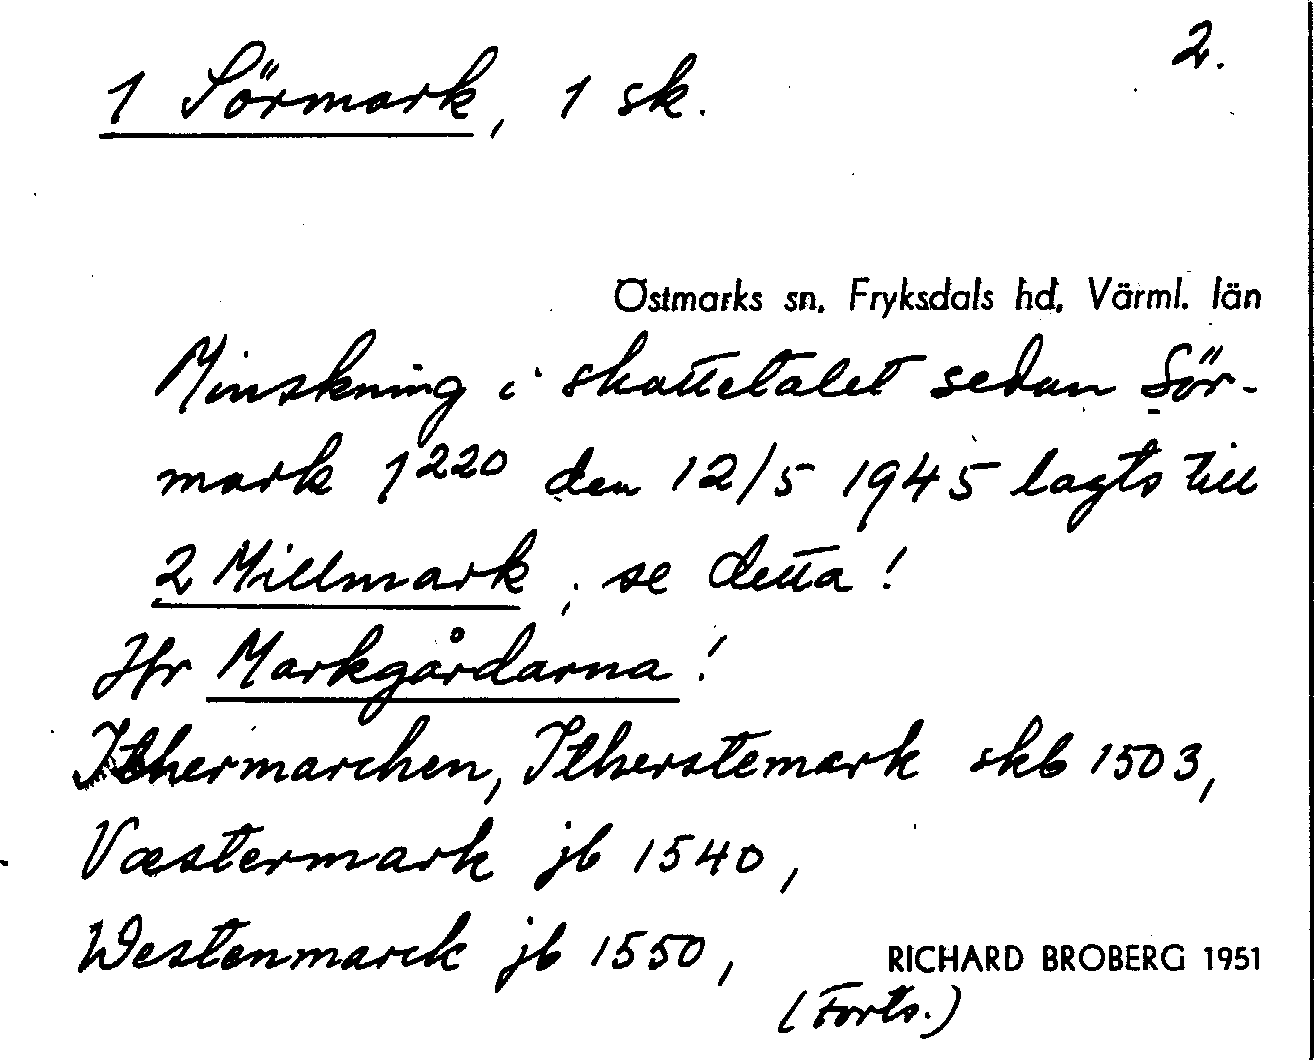 2.
1 Sörmark, 1 sk.
Östmarks sn. Fryksdals hd. Värml. län
Minskning i skattetalet sedan Sör-
mark 1²²⁰ den 12/5 1945 lagts till
2 Millmark; se detta!
Jfr Markgårdarna!
Ithermarchen, Itherstemark skb 1503,
Væstermark jb 1540,
Westenmarck jb 1550,
RICHARD BROBERG 1951
(Forts.)